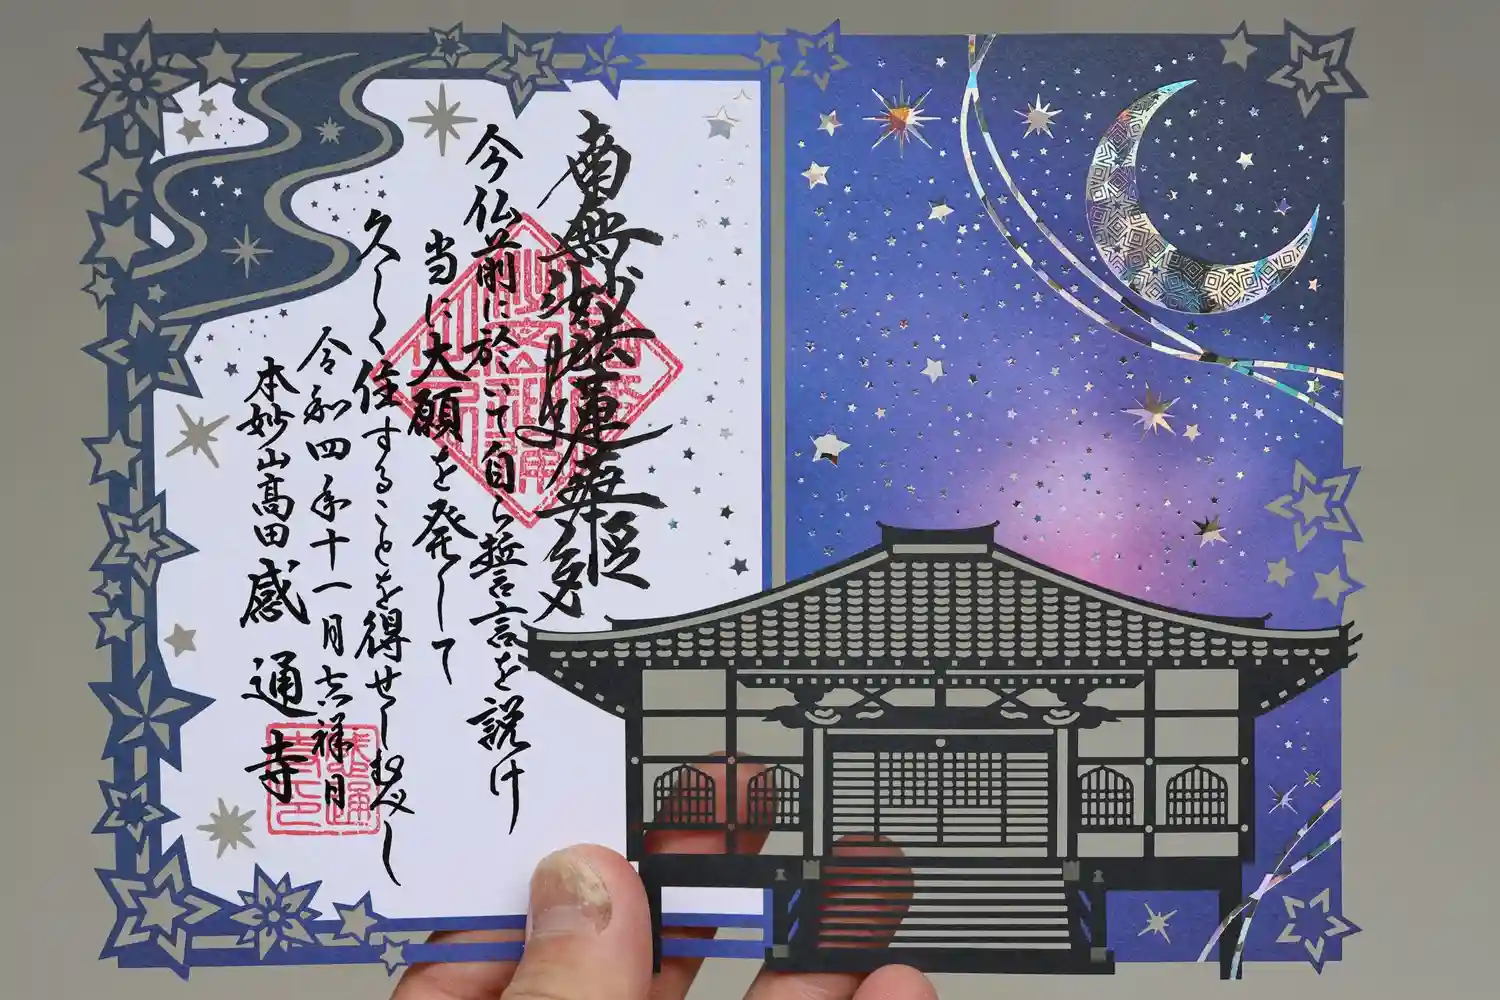 南無妙法蓮華経
今仏前に於いて自ら誓言を説け
当に大願を発して
久しく住することを得せしむべし
令和四年十一月吉祥日
本妙山高田
感通寺